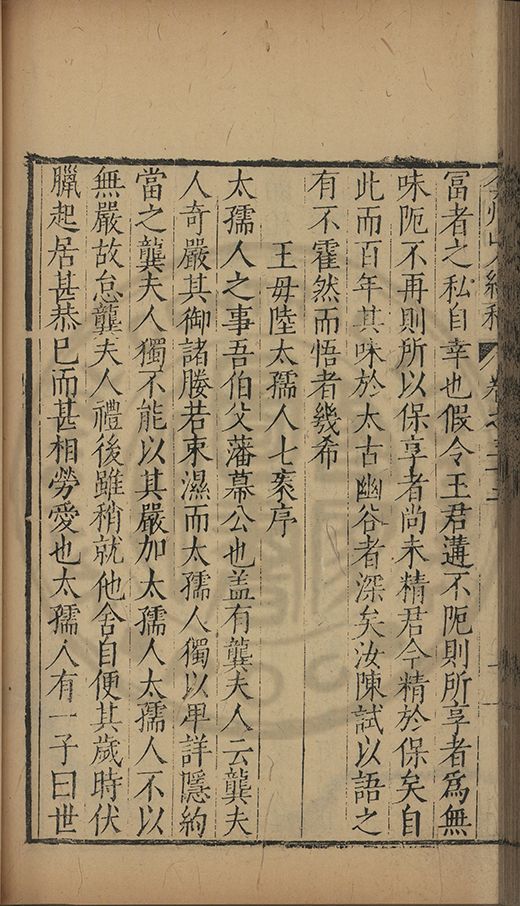 富者之私自幸也假令王君遘不阨則所享者爲無
味阨不再則所以保享者尚未精君今精於保矣自
此而百年其味於太古幽谷者深矣汝陳試以語之
有不霍然而悟者幾希
王毋陸太孺人七袠序
太孺人之事吾伯父藩幕公也盖有龔夫人云龔夫
人奇嚴其御諸媵若束濕而太孺人獨以卑詳隱約
當之龔夫人獨不能以其嚴加太孺人太孺人不以
無嚴故怠龔夫人禮後雖稍就他舍自便其歲時伏
臘起居甚恭巳而甚相勞愛也太孺人有一子曰世